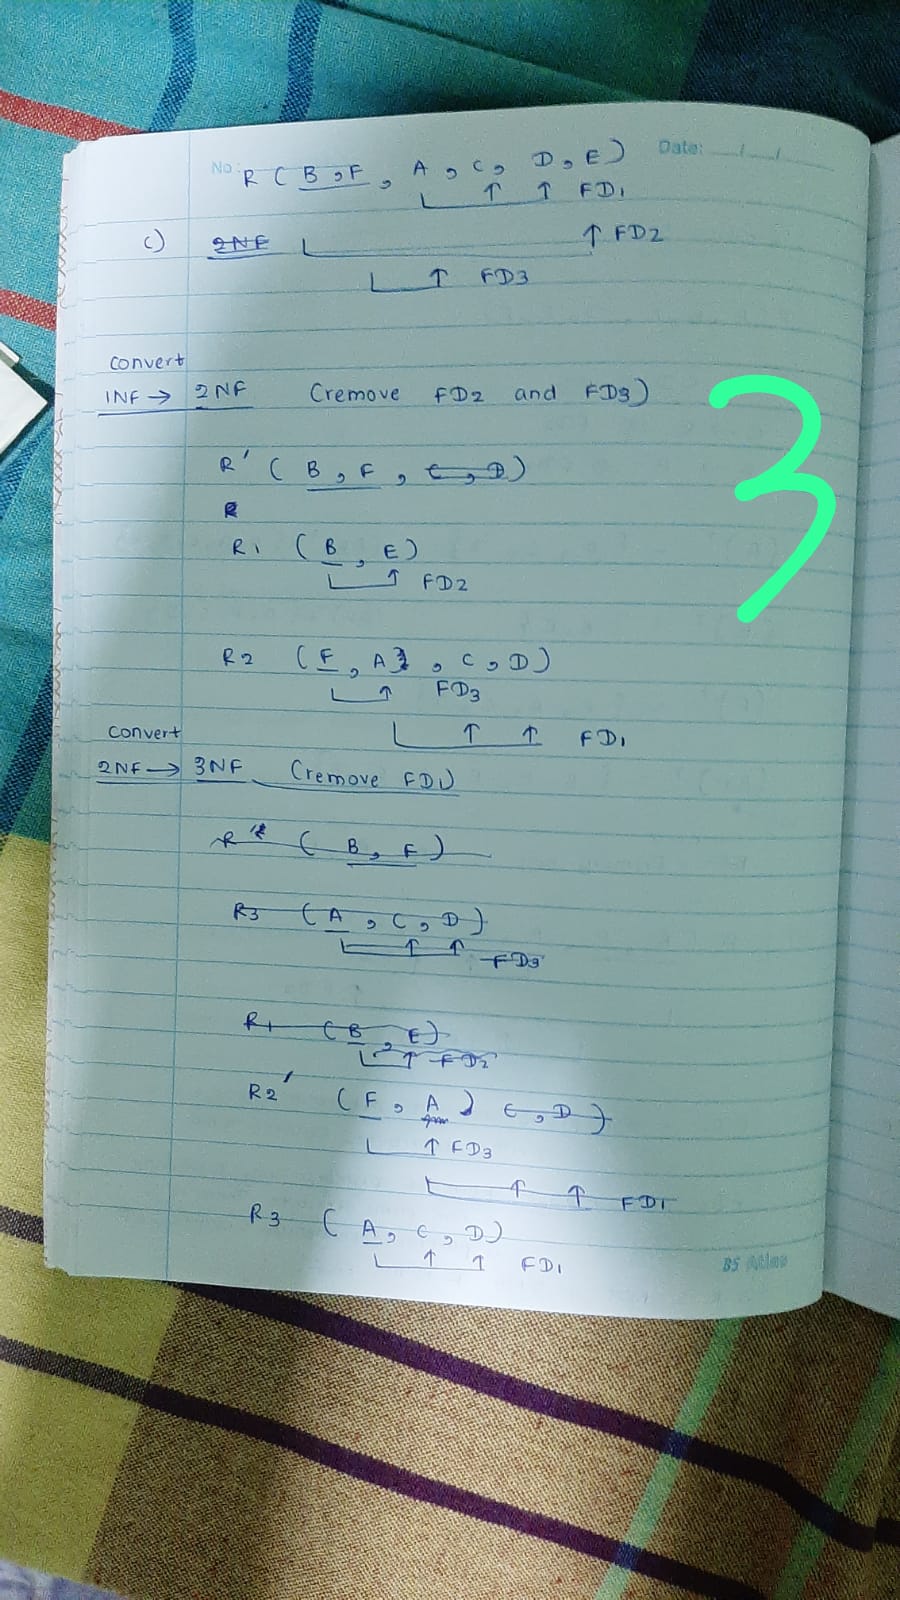 No: Date: __/__/__
R ( B, F, A, C, D, E )
↑ ↑ FD1
c) 2NF ↑ FD2
↑ FD3
convert
1NF → 2NF (remove FD2 and FD3)
R' ( B, F, C, D )
R
R1 ( B, E )
↑ FD2
R2 ( F, A, C, D )
↑ FD3
↑ ↑ FD1
convert
2NF → 3NF (remove FD1)
R'' ( B, F )
R3 ( A, C, D )
↑ ↑ FD3
R1 ( B, E )
↑ FD2
R2' ( F, A ) C, D )
↑ FD3
↑ ↑ FD1
R3 ( A, C, D )
↑ ↑ FD1
BS Atlas
3